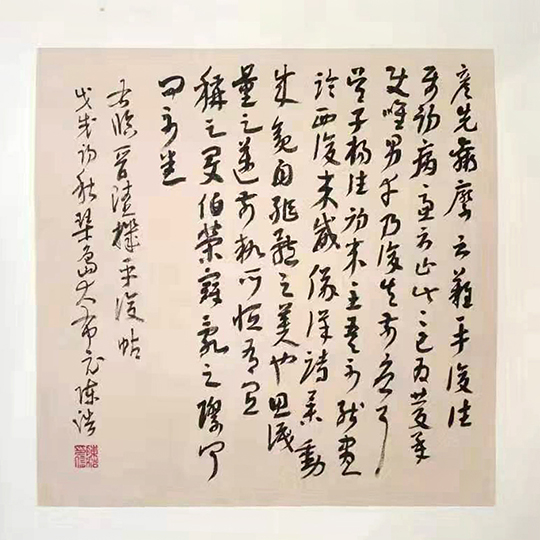 彦先羸瘵恐難平復往
屬初病慮不止此此已為慶承
使唯男幸為復失前憂耳
吳子楊往初來主吾不能盡
臨西復來威儀詳跱舉動
成觀自軀體之美也思識
量之邁前執所恒有宜
稱之夏伯榮寇亂之際聞
問不悉
右臨晉陸機平復帖
戊戌初秋琴島大布衣陳浩